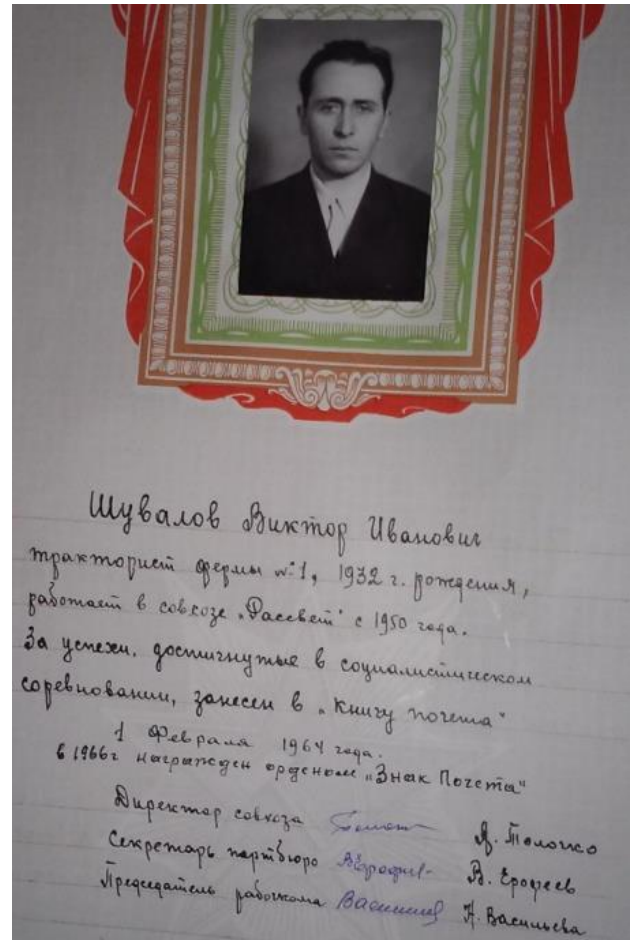 Шувалов Виктор Иванович
тракторист фермы №1, 1932 г. рождения,
работает в совхозе „Рассвет" с 1950 года.
За успехи, достигнутые в социалистическом
соревновании, занесен в „Книгу почета"
1 Февраля 1964 года.
в 1966г награжден орденом „Знак Почета"
Директор совхоза Толочко
Секретарь партбюро В. Ерофеев
Председатель рабочкома Васильева Н. Васильева